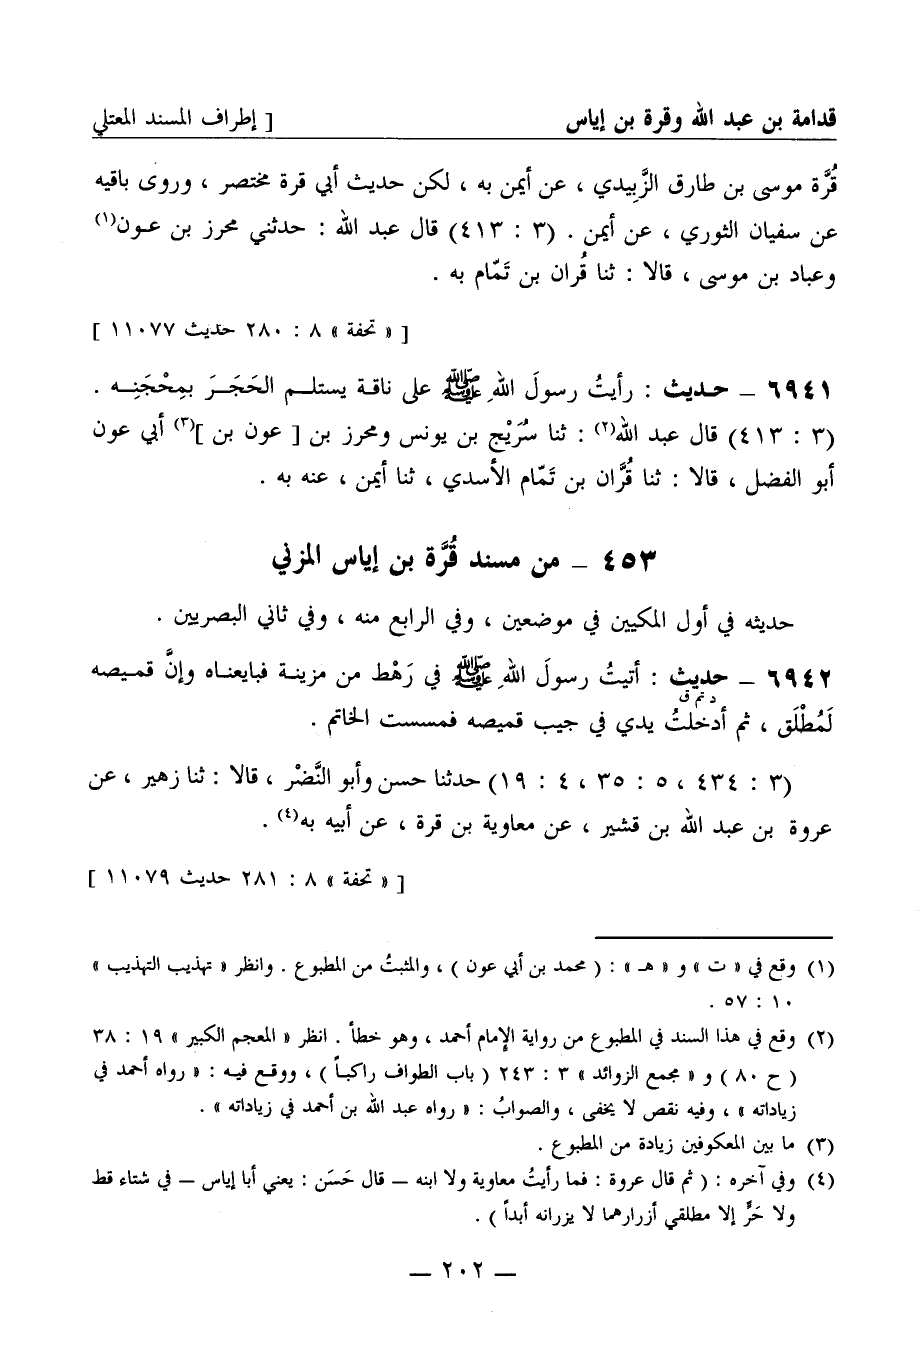 قدامة بن عبد الله وقرة بن إياس [ إطراف المسند المعتلي
قُرَّة موسى بن طارق الزَّبِيدي ، عن أيمن به ، لكن حديث أبي قرة مختصر ، وروى باقيه
عن سفيان الثوري ، عن أيمن . (٣ : ٤١٣) قال عبد الله : حدثني محرز بن عـون(١)
وعباد بن موسى ، قالا : ثنا قُران بن تَمّام به .
[ « تحفة » ٨ : ٢٨٠ حديث ١١٠٧٧ ]
٦٩٤١ ـ حـديث : رأيتُ رسولَ اللهِ ﷺ على ناقـة يستلـم الحَجَـرَ بمِحْجَنِـه .
(٣ : ٤١٣) قال عبد الله(٢) : ثنا سُرَيْج بن يونس ومحرز بن [ عون بن ](٣) أبي عون
أبو الفضل ، قالا : ثنا قُرَّان بن تَمّام الأسدي ، ثنا أيمن ، عنه به .
٤٥٣ ـ من مسند قُرَّة بن إياس المزني
حديثه في أول المكيين في موضعين ، وفي الرابع منه ، وفي ثاني البصريين .
٦٩٤٢ ـ حديث : أتيتُ رسولَ اللهِ ﷺ في رَهْط من مزينـة فبايعنـاه وإنَّ قميـصه
د تم ق
لَمُطْلَق ، ثم أدخلتُ يدي في جيب قميصه فمسست الخاتم .
(٣ : ٤٣٤ ، ٥ : ٣٥ ، ٤ : ١٩) حدثنا حسن وأبو النَّضْر ، قالا : ثنا زهير ، عن
عروة بن عبد الله بن قشير ، عن معاوية بن قرة ، عن أبيه به(٤) .
[ « تحفة » ٨ : ٢٨١ حديث ١١٠٧٩ ]
(١) وقع في « ت » و « هـ » : ( محمد بن أبي عون ) ، والمثبتُ من المطبوع . وانظر « تهذيب التهذيب »
١٠ : ٥٧ .
(٢) وقع في هذا السند في المطبوع من رواية الإمام أحمد ، وهو خطأ . انظر « المعجم الكبير » ١٩ : ٣٨
( ح ٨٠ ) و « مجمع الزوائد » ٣ : ٢٤٣ ( باب الطواف راكبـاً ) ، ووقـع فيـه : « رواه أحمد في
زياداته » ، وفيه نقص لا يخفى ، والصوابُ : « رواه عبد الله بن أحمد في زياداته » .
(٣) ما بين المعكوفين زيادة من المطبوع .
(٤) وفي آخره : ( ثم قال عروة : فما رأيتُ معاوية ولا ابنه – قال حَسَن : يعني أبا إياس – في شتاء قط
ولا حَرٍّ إلا مطلقي أزرارهما لا يزرانه أبداً ) .
— ٢٠٢ —